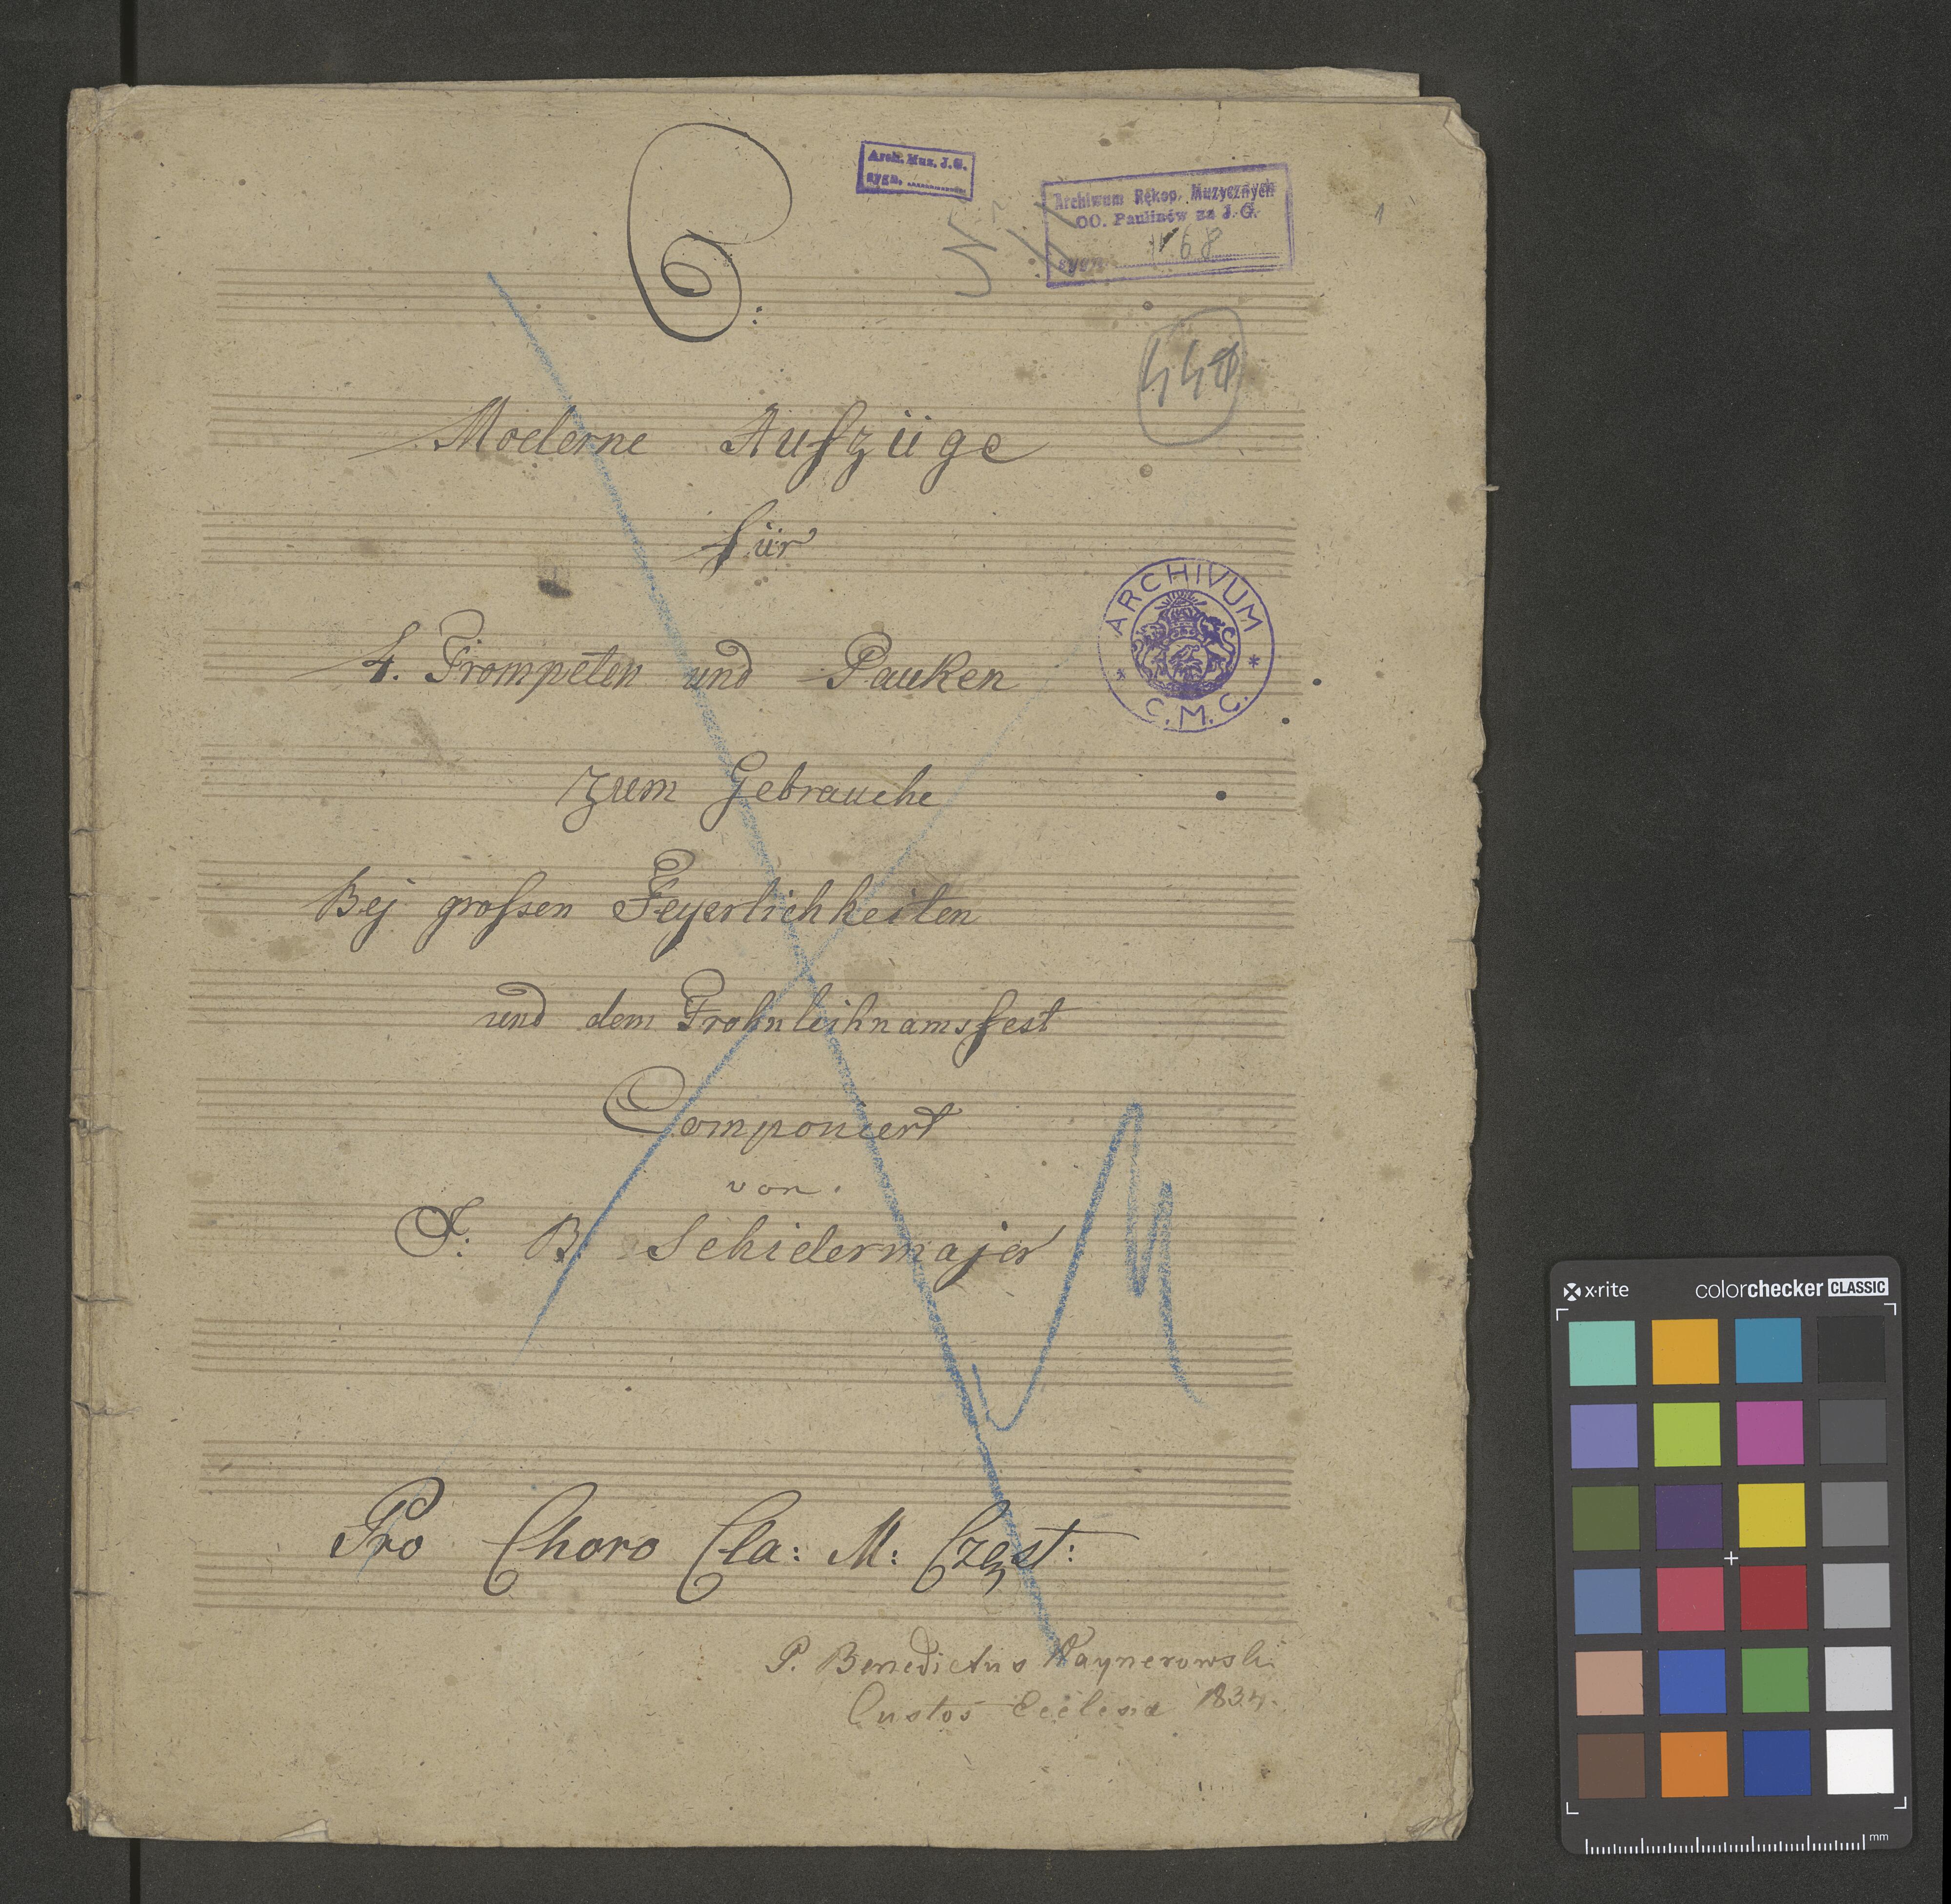 6:
Arch. Muz. J.G.
sygn. ............
Archiwum Rękop. Muzycznych
OO. Paulinów na J. G.
sygn. 68
1
Moderne Aufzüge
für
4. Trompeten und Pauken
ARCHIVUM
* C.M.C. *
zum Gebrauche
Bej grossen Feyerlichkeiten
und dem Frohnleihnamsfest
Componiert
von.
F: B. Schidermajer
Pro Choro Cla: M: Częst:
P. Benedictus Waynerowski
Custos Ecclesiæ 1834.
x·rite
colorchecker CLASSIC
mm